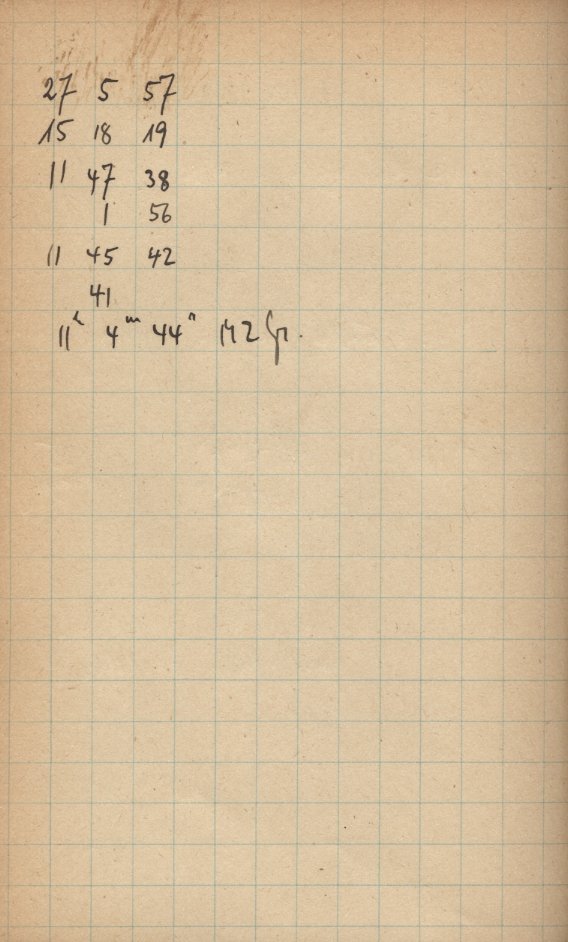 27 5 57
15 18 19
11 47 38
1 56
11 45 42
41
11ʰ 4ᵐ 44ˢ M2 Gr.